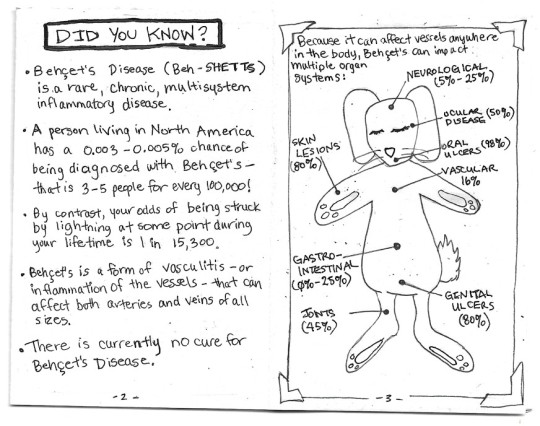 DID YOU KNOW?
• Behçet's Disease (Beh-SHETTS)
is a rare, chronic, multisystem
inflammatory disease.
• A person living in North America
has a 0.003-0.005% chance of
being diagnosed with Behçet's -
that is 3-5 people for every 100,000!
• By contrast, your odds of being struck
by lightning at some point during
your lifetime is 1 in 15,300.
• Behçet's is a form of vasculitis - or
inflammation of the vessels - that can
affect both arteries and veins of all
sizes.
• There is currently no cure for
Behçet's Disease.
- 2 -
Because it can affect vessels anywhere
in the body, Behçet's can impact
multiple organ
systems:
NEUROLOGICAL
(5%-25%)
OCULAR
DISEASE (50%)
ORAL
ULCERS (98%)
SKIN
LESIONS
(80%)
VASCULAR
16%
GASTRO-
INTESTINAL
(0%-25%)
GENITAL
ULCERS
(80%)
JOINTS
(45%)
- 3 -